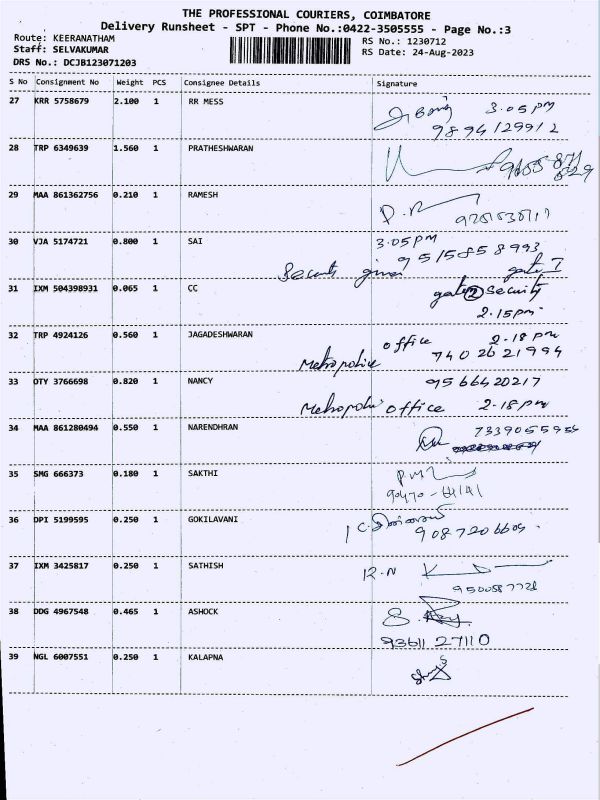 THE PROFESSIONAL COURIERS, COIMBATORE
Delivery Runsheet - SPT - Phone No.:0422-3505555 - Page No.:3
Route: KEERANATHAM
RS No.: 1230712
Staff: SELVAKUMAR
RS Date: 24-Aug-2023
DRS No.: DCJB123071203
S No Consignment No Weight PCS Consignee Details Signature
27 KRR 5758679 2.100 1 RR MESS 3.05 pm
9894129912
28 TRP 6349639 1.560 1 PRATHESHWARAN
29 MAA 861362756 0.210 1 RAMESH
30 VJA 5174721 0.800 1 SAI 3.05 PM
9515858993
Security given gate I
31 IXM 504398931 0.065 1 CC gate 2 security
2.15 pm
32 TRP 4924126 0.560 1 JAGADESHWARAN office 2-18 pm
Metropolice 7402621994
33 OTY 3766698 0.820 1 NANCY 9566420217
office 2-18 pm
34 MAA 861280494 0.550 1 NARENDHRAN
35 SMG 666373 0.180 1 SAKTHI
36 DPI 5199595 0.250 1 GOKILAVANI
37 IXM 3425817 0.250 1 SATHISH R.N
38 DDG 4967548 0.465 1 ASHOCK
93611 27110
39 NGL 6007551 0.250 1 KALAPNA